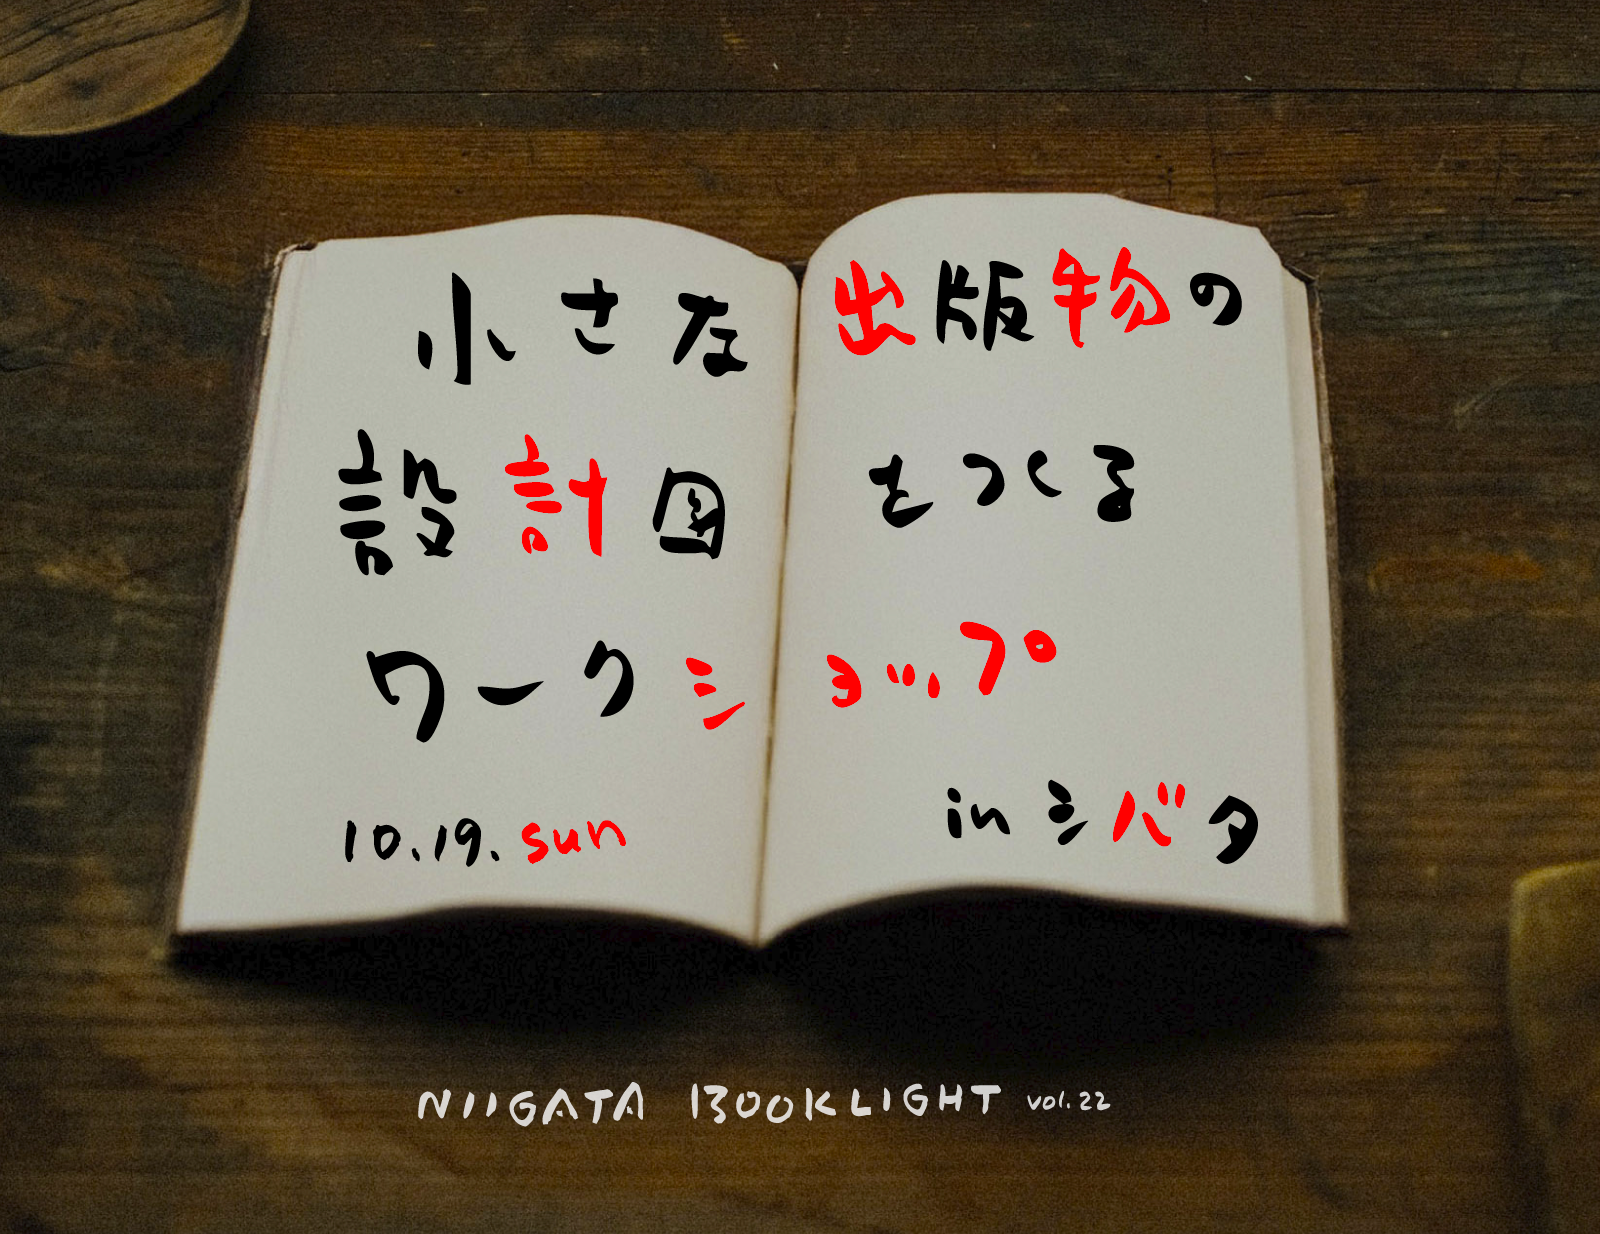 小さな出版物の
設計図をつくる
ワークショップ
10.19.sun
inシバタ
NIIGATA BOOKLIGHT vol.22